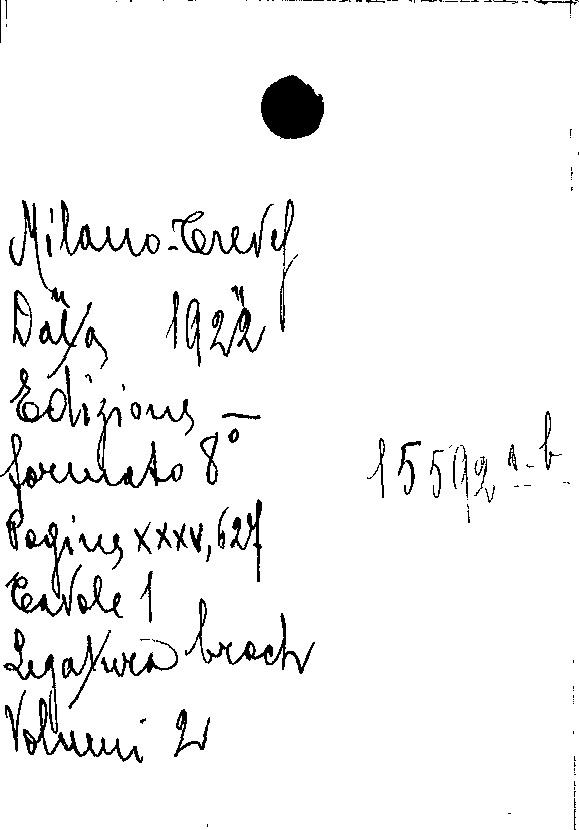 Milano-Treves
Data 1922
Edizione —
formato 8°
Pagine XXXV, 627
Tavole 1
Legatura broch
Volumi 2
15592 a-b